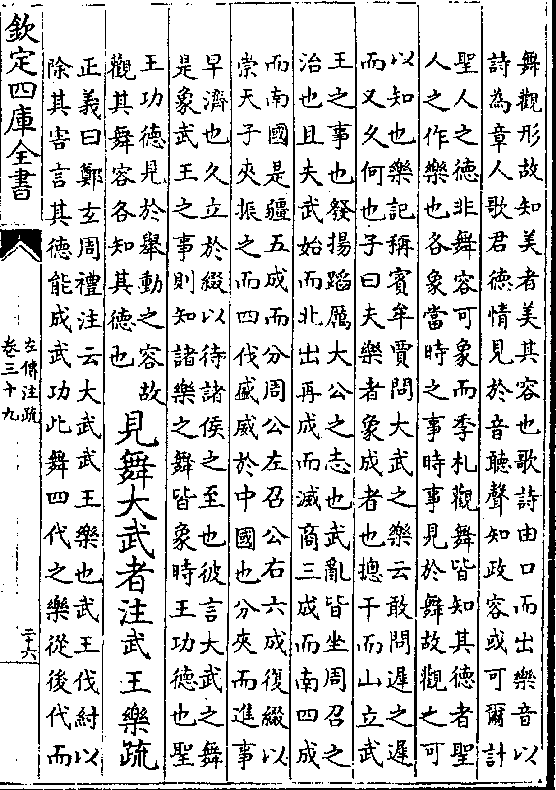 舞觀形故知美者美其容也歌詩由口而出樂音以
詩為章人歌君德情見於音聽聲知政容或可爾計
聖人之德非舞容可象而季札觀舞皆知其德者聖
人之作樂也各象當時之事時事見於舞故觀之可
以知也樂記稱賓牟賈問大武之樂云敢問遲之遲
而又久何也子曰夫樂者象成者也揔干而山立武
王之事也發揚蹈厲大公之志也武亂皆坐周召之
治也且夫武始而北出再成而滅商三成而南四成
而南國是疆五成而分周公左召公右六成復綴以
崇天子夾振之而四伐盛威於中國也分夾而進事
早濟也久立於綴以待諸侯之至也彼言大武之舞
是象武王之事則知諸樂之舞皆象時王功德也聖
王功德見於舉動之容故
觀其舞容各知其德也
見舞大武者注武王樂疏
正義曰鄭玄周禮注云大武武王樂也武王伐紂以
除其害言其德能成武功此舞四代之樂從後代而
欽定四庫全書
左傳注疏
卷三十九
二十六